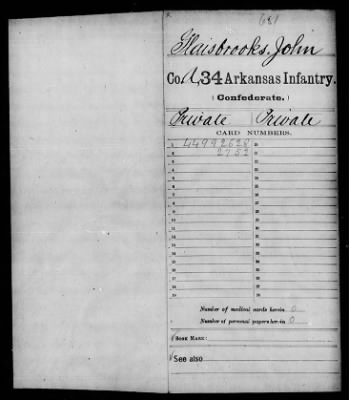 681
Flaisbrooks, John
Co. A, 34 Arkansas Infantry.
(Confederate.)
Private Private
CARD NUMBERS.
1 44992628
2 2752
Number of medical cards herein 0
Number of personal papers herein 0
BOOK MARK:
See also